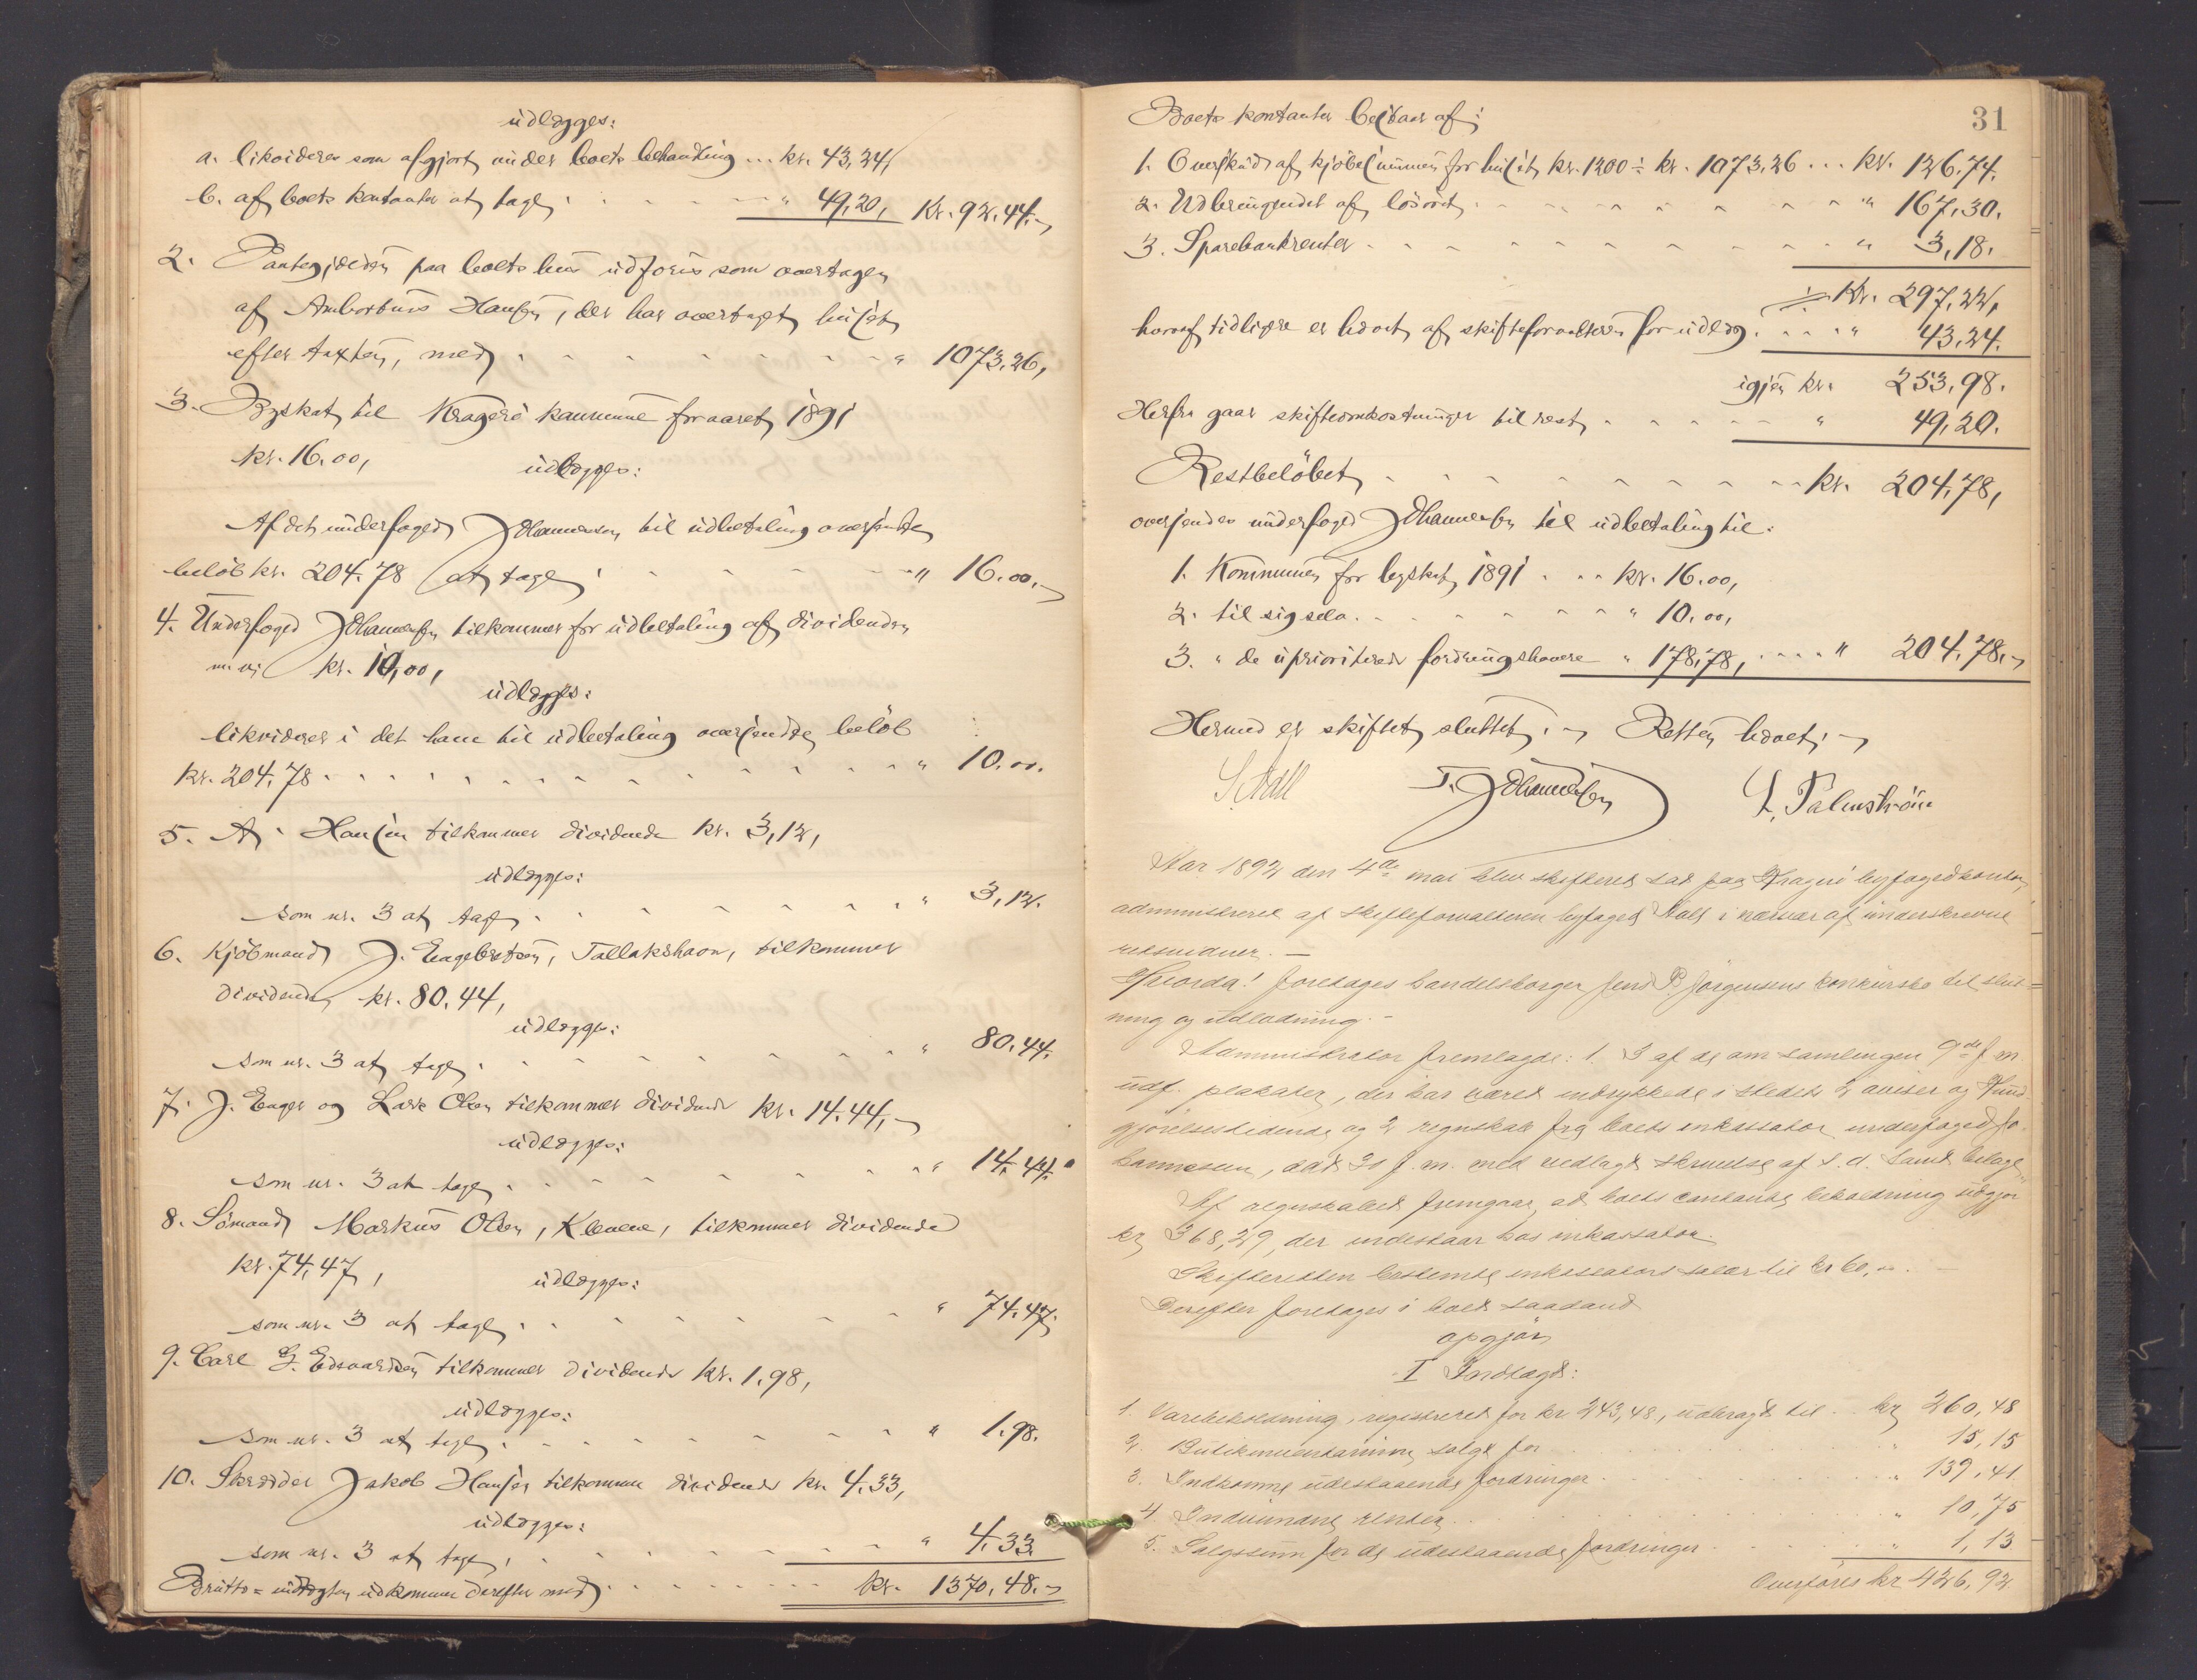 udlægges:
a. likvideres som afgjort under boets behandling ... kr. 43,24,
b. af boets kontanter at tage . . . . " 49,20, Kr. 92,44.
2. Pantegjælden paa boets hus udføres som overtagen
af Ambortius Hansen, der har overtaget huset
efter taxten, med . . . . " 1073,26,
3. Byskat til Kragerø kommune for aaret 1891
kr. 16.00,
udlægges:
Af det underfoged Johannessen til udbetaling oversendte
beløb kr. 204.78 at tage . . . . " 16.00.
4. Underfoged Johannessen tilkommer for udbetaling af dividenden
kr. 10,00,
udlægges:
likvideres i det ham til udbetaling oversendte beløb
kr. 204,78 . . . . " 10.00.
5. A. Hansen tilkommer dividende kr. 3,12,
udlægges:
som nr. 3 at tage . . . . " 3,12.
6. Kjøbmand J. Engebretsen, Tallakshavn, tilkommer
dividende kr. 80.44,
udlægges:
som nr. 3 at tage . . . . " 80.44.
7. J. Enger og Lars Olsen tilkommer dividende kr. 14.44,
udlægges:
som nr. 3 at tage . . . . " 14.44.
8. Sømand Markus Olsen, tilkommer dividende
kr. 74,47,
udlægges:
som nr. 3 at tage . . . . " 74.47.
9. Carl G. Edvardsen tilkommer dividende kr. 1.98,
udlægges:
som nr. 3 at tage . . . . " 1.98.
10. Skræder Jakob Hansen tilkommer dividende kr. 4.33,
udlægges:
som nr. 3 at tage . . . . " 4.33.
Brutto = indtægten udkommer derefter med . . . . kr. 1370,48.
31
Boets kontanter bestaar af:
1. Overskud af kjøbesummen for huset kr. 1200 ÷ kr. 1073,26 ... kr. 126.74.
2. Udbringendet af løsøret . . . . " 167,30.
3. Sparebankrenter . . . . " 3,18.
Kr. 297,22,
hvoraf tidligere er hævet af skifteforvalteren for udlæg . . . . " 43,24.
igjen kr. 253,98.
Herfra gaar skifteomkostninger til rest . . . . " 49,20.
Restbeløbet . . . . kr. 204,78,
oversendes underfoged Johannessen til udbetaling til:
1. Kommunen for byskat 1891 . . kr. 16.00,
2. til sig selv . . . . " 10.00,
3. " de uprioriterede fordringshavere " 178,78, . . . . " 204.78.
Hermed er skiftet sluttet. Retten hævet.
S. Aall T. Johannessen L. Palmstrøm
Aar 1892 den 4de mai blev skifteret sat paa Kragerø byfogedkontor,
administreret af skifteforvalteren byfoged Aall i nærvær af underskrevne
retsvidner. —
Hvorda! foretages handelsborger Jens P. Jørgensens konkursbo til slut=
ning og udlodning. -
Administrator fremlagde: 1. 3 af de om samlingen 9de f. m.
udf. plakater, der har været indrykkede i stedets 2 aviser og Kund-
gjørelsestidende og 2 regnskab fra boets inkassator underfoged Jo-
hannessen, dat. 30 f. m. med vedlagt skrivelse af s. d. samt bilage
Af regnskabet fremgaar, at boets contante beholdning udgjør
kr 368,29, der indestaar hos inkassator.
Skifteretten bestemte inkassators salær til kr 60,00. —
Derefter foretages i boet saadant
opgjør
I Indtægt:
1. Varebeholdning, registreret for kr 243,48, udbragt til . . kr 260,48
2. Butikinventarium solgt for . . . . " 15,15
3. Indkomne udestaaende fordringer . . . . " 139,41
4. Indvundne renter . . . . " 10,75
5. Salgssum for de udestaaende fordringer . . . . " 1,13
Overføres kr 426,92